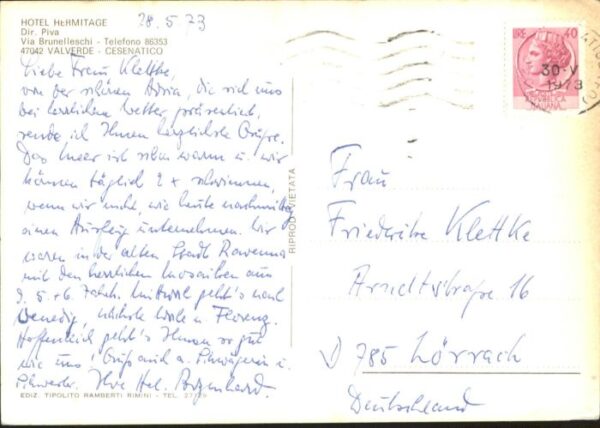 HOTEL HERMITAGE
Dir. Piva
Via Brunelleschi - Telefono 86353
47042 VALVERDE - CESENATICO
28.5.73
Liebe Frau Klettke,
von der schönen Adria, die sich uns
bei herrlichem Wetter präsentiert,
sende ich Ihnen herzlichste Grüße.
Das Meer ist schon warm u. wir
können täglich 2 x schwimmen,
wenn wir nicht, wie heute nachmittag
einen Ausflug unternehmen. Wir
waren in der alten Stadt Ravenna
mit den herrlichen Mosaiken aus
d. 5. + 6. Jahrh. Mittwoch geht's nach
Venedig, nächste Woche n. Florenz.
Hoffentlich geht's Ihnen so gut
wie uns! Gruß auch a. Schwägerin u.
Schwester. Ihre Hel.
EDIZ. TIPOLITO RAMBERTI RIMINI - TEL.
RIPROD. VIETATA
LIRE 40
REPVBBLICA
ITALIANA
30-V
1973
Frau
Friederike Klettke
Arndtstraße 16
D 785 Lörrach
Deutschland